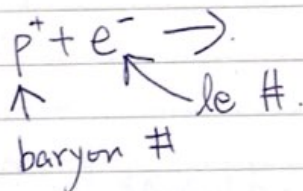 p⁺ + e⁻ →.
le #.
baryon #